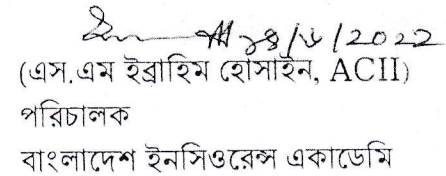 (এস.এম ইব্রাহিম হোসাইন, ACII)
পরিচালক
বাংলাদেশ ইনসিওরেন্স একাডেমি